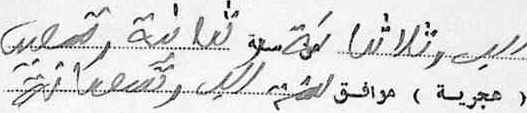 الف وثلاثمائة سنة ثمانية وتسعين
( هجرية ) موافق لسنة الف وتسعمائة